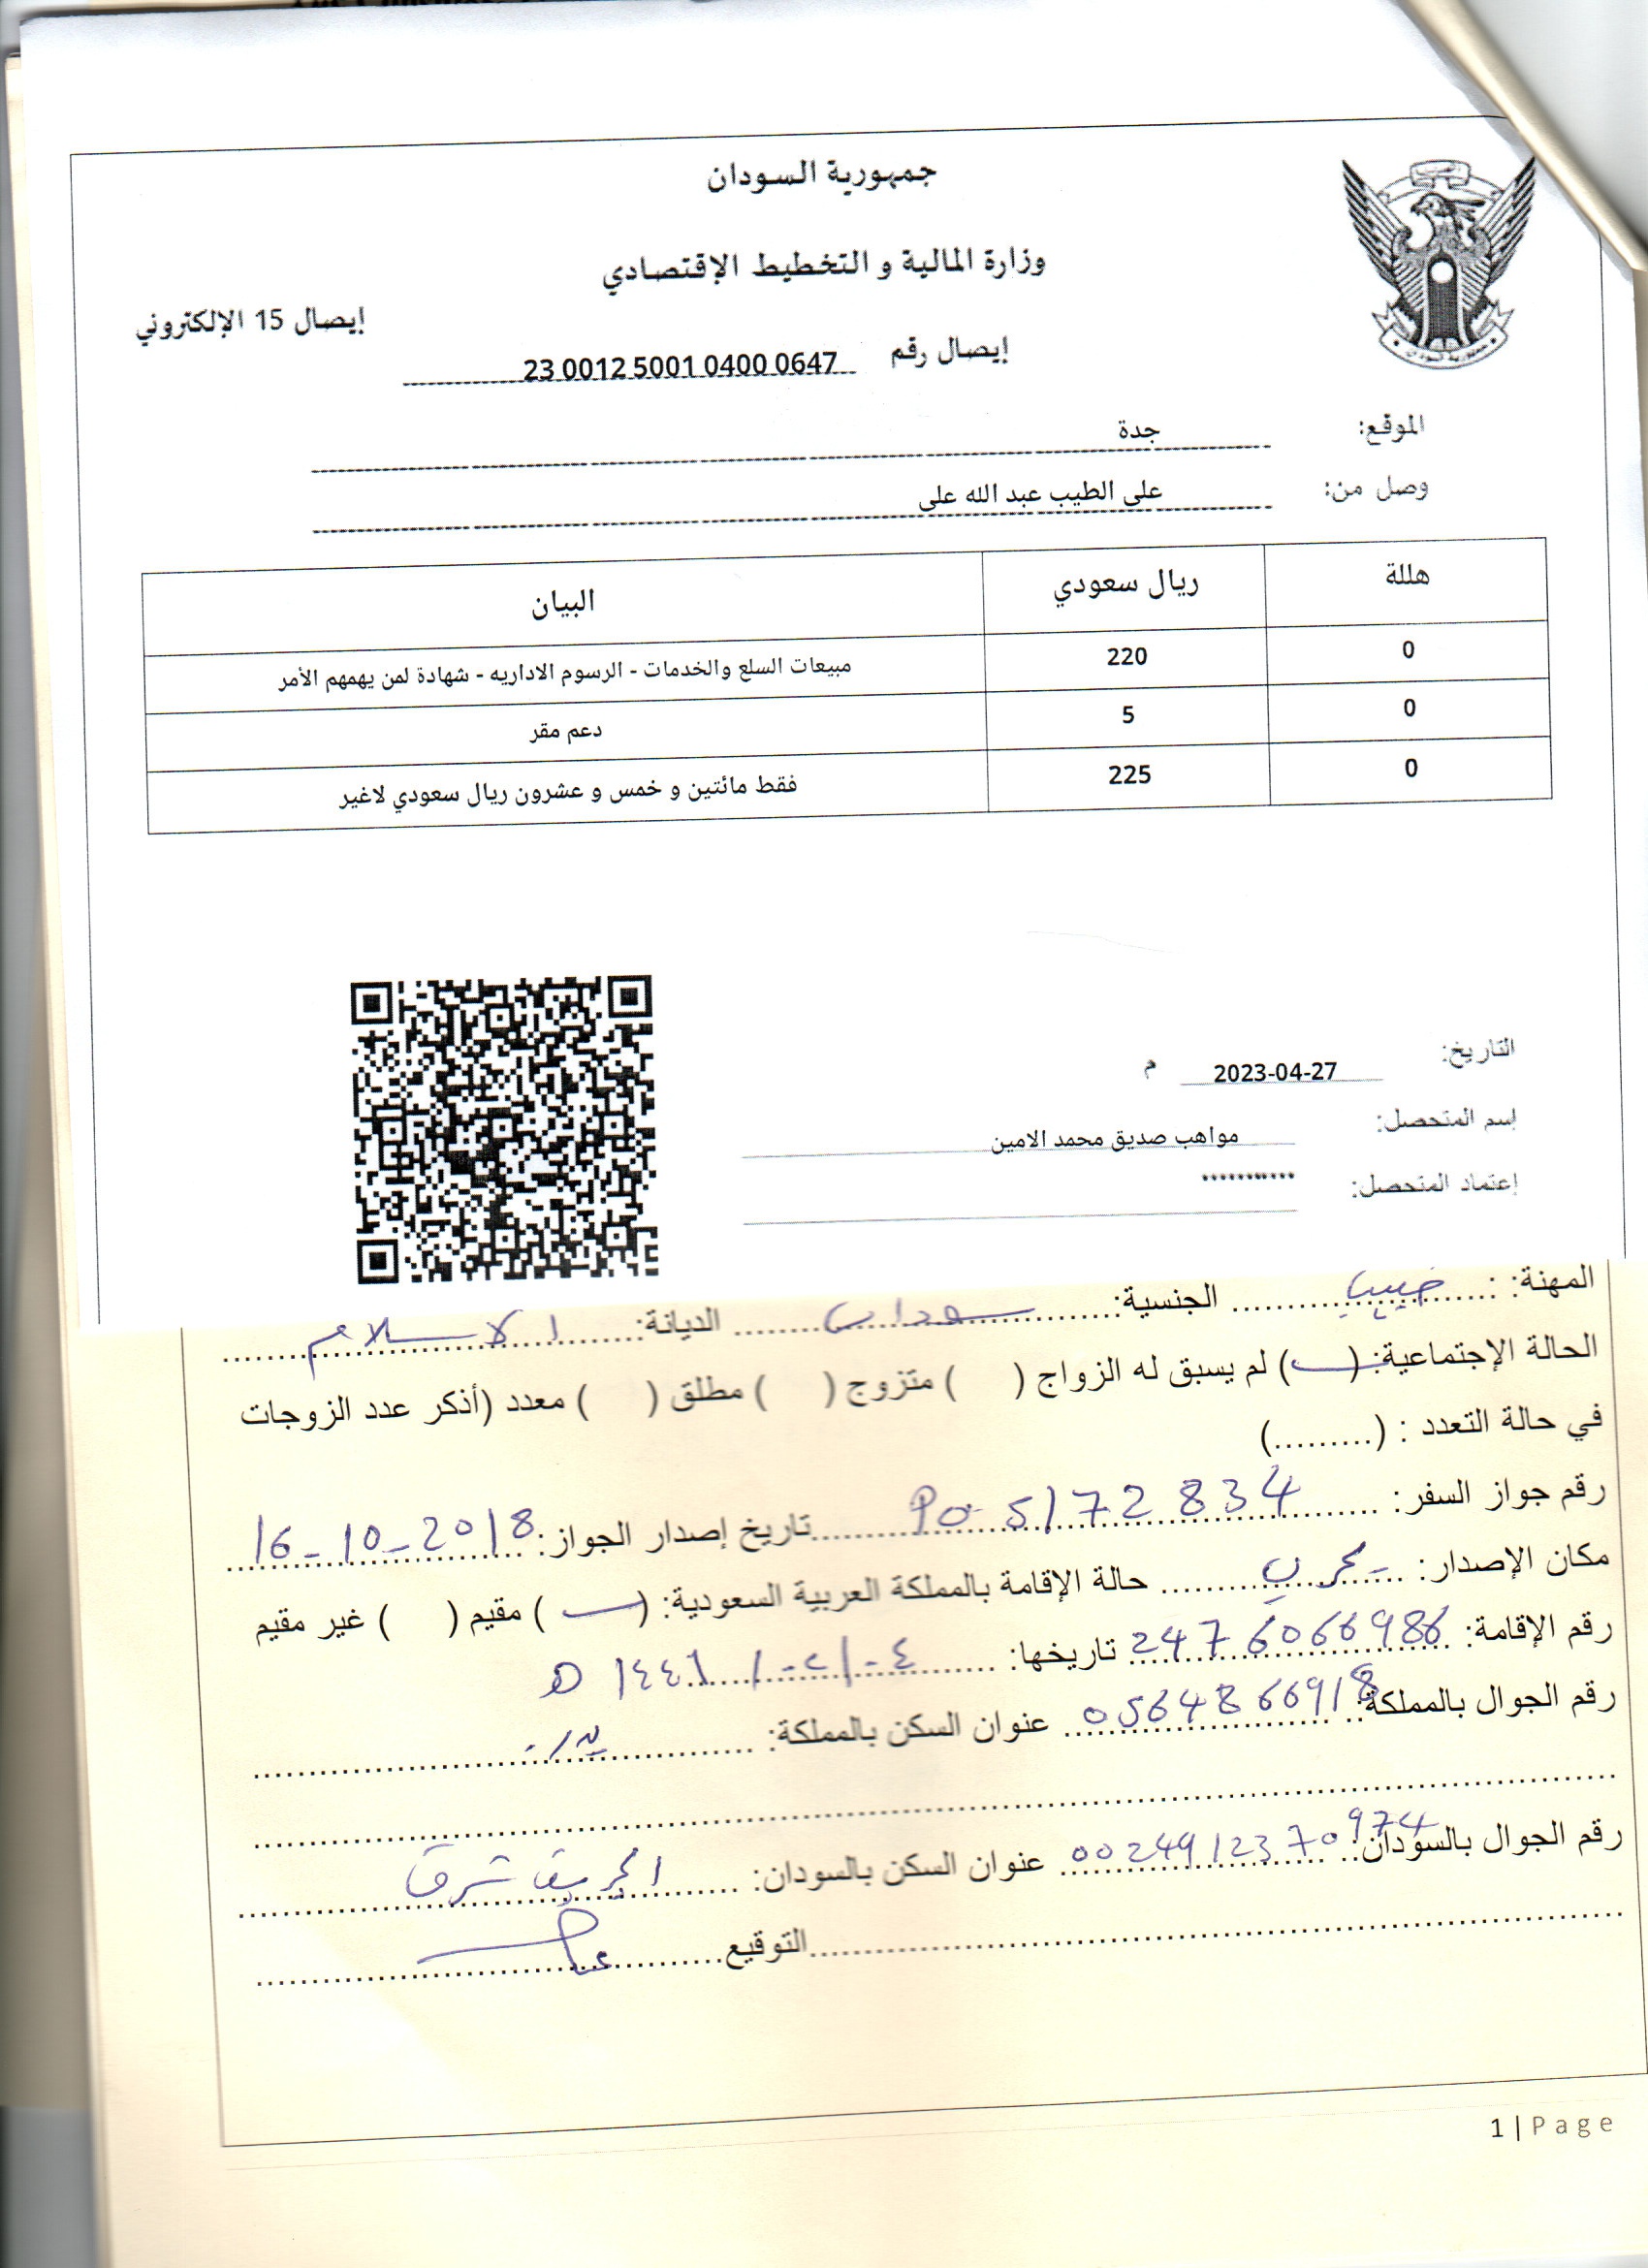 جمهورية السودان
وزارة المالية و التخطيط الإقتصادي
إيصال 15 الإلكتروني
إيصال رقم 23 0012 5001 0400 0647
الموقع: جدة
وصل من: على الطيب عبد الله على
هللة ريال سعودي البيان
0 220 مبيعات السلع والخدمات - الرسوم الاداريه - شهادة لمن يهمهم الأمر
0 5 دعم مقر
0 225 فقط مائتين و خمس و عشرون ريال سعودي لاغير
التاريخ: 2023-04-27 م
إسم المتحصل: مواهب صديق محمد الامين
إعتماد المتحصل: ***********
المهنة: : الجنسية: الديانة: الاسلام
الحالة الإجتماعية: ( ) لم يسبق له الزواج ( ) متزوج ( ) مطلق ( ) معدد (أذكر عدد الزوجات
في حالة التعدد : (.........)
رقم جواز السفر: P05172834 تاريخ إصدار الجواز: 16-10-2018
مكان الإصدار: حالة الإقامة بالمملكة العربية السعودية: ( ) مقيم ( ) غير مقيم
رقم الإقامة: 2476066986 تاريخها:
رقم الجوال بالمملكة: 0564866918 عنوان السكن بالمملكة:
رقم الجوال بالسودان: 0024912370974 عنوان السكن بالسودان: شرق
التوقيع
1 | Page